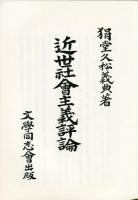 狷堂久松義典著
近世社會主義評論
文學同志會出版